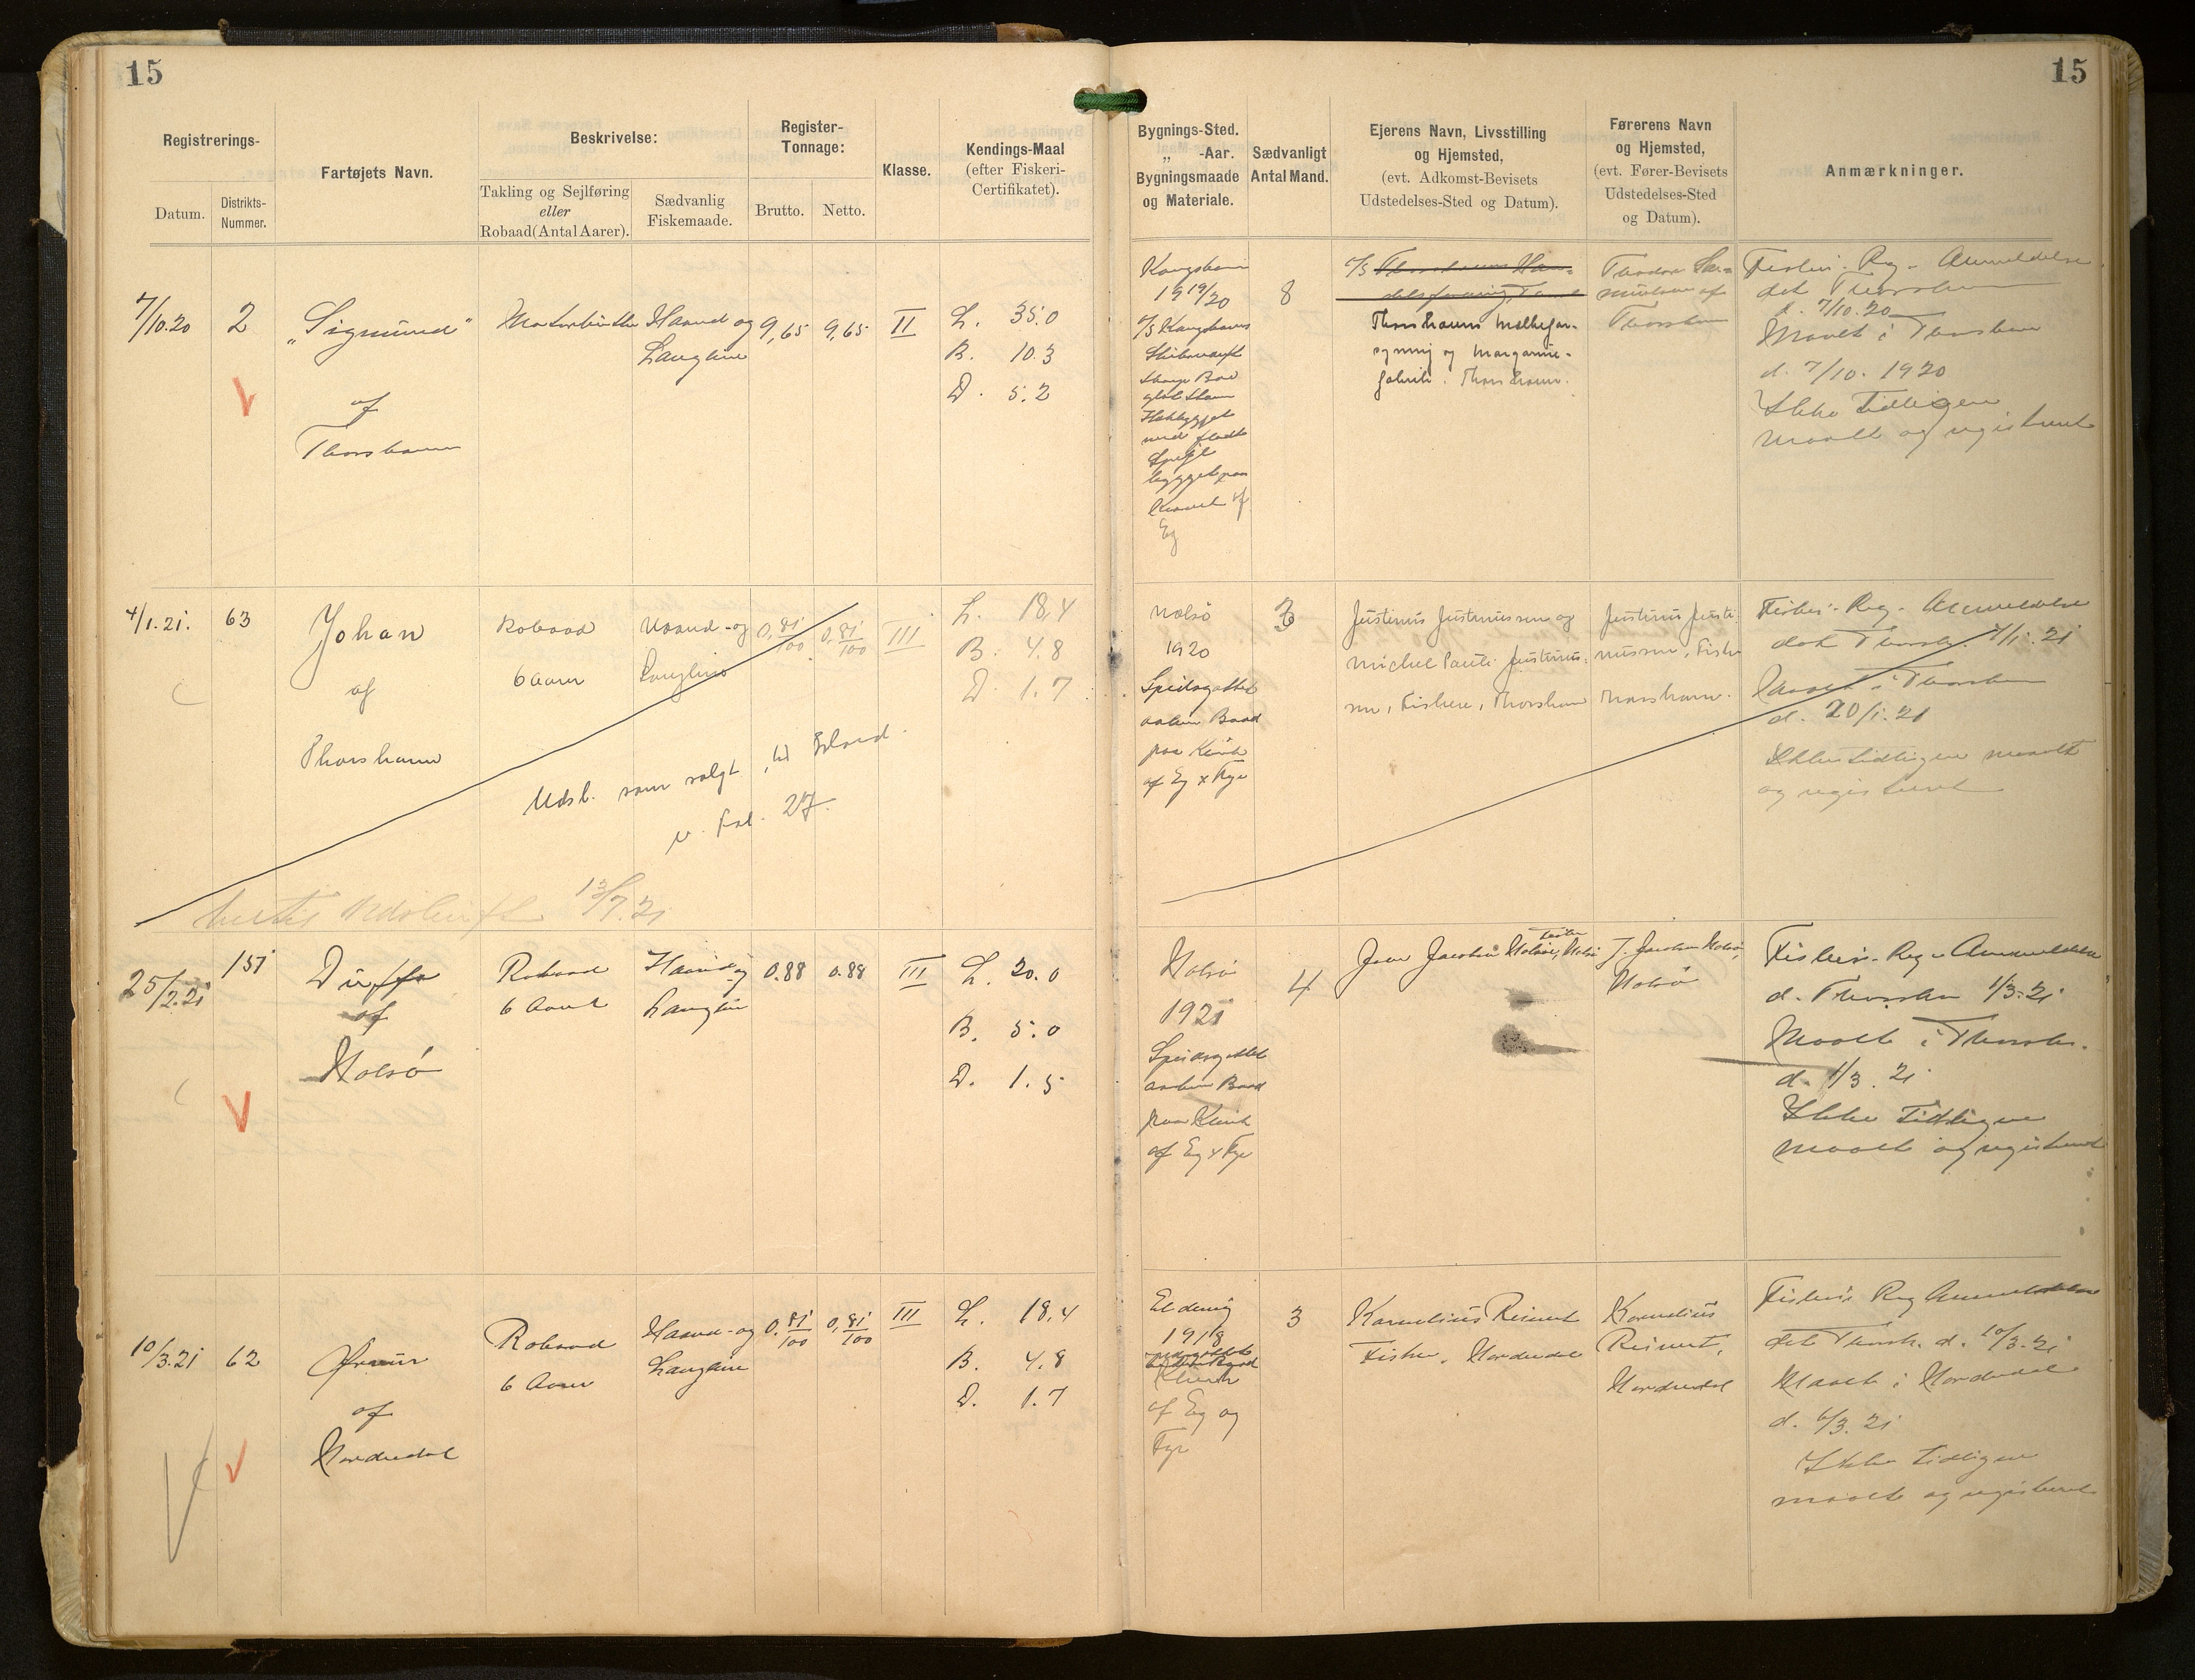 15
Registrerings-
Datum.
Distrikts-
Nummer.
Fartøjets Navn.
Beskrivelse:
Takling og Sejlføring
eller
Robaad (Antal Aarer).
Sædvanlig
Fiskemaade.
Register-
Tonnage:
Brutto.
Netto.
Klasse.
Kendings-Maal
(efter Fiskeri-
Certifikatet).
7/10.20
2
"Sigmund"
af
Thorshavn
Haand og
Langline
9,65
9,65
II
L. 35.0
B. 10.3
D. 5.2
4/1.21.
63
Johan
af
Thorshavn
Robaad
6 Aarer
Haand- og
Langline
0,81/100
0,81/100
III
L. 18,4
B. 4.8
D. 1.7
Udsl. som solgt til
v. Fol. 27.
13/7.21
25/2.21
151
af
Nolsö
Robaad
6 Aarer
Haand og
Langline
0.88
0.88
III
L. 20.0
B. 5.0
D. 1.5
10/3.21
62
af
Nordredal
Robaad
6 Aarer
Haand- og
Langline
0,81/100
0,81/100
III
L. 18,4
B. 4.8
D. 1.7
15
Bygnings-Sted.
„ -Aar.
Bygningsmaade
og Materiale.
Sædvanligt
Antal Mand.
Ejerens Navn, Livsstilling
og Hjemsted,
(evt. Adkomst-Bevisets
Udstedelses-Sted og Datum).
Førerens Navn
og Hjemsted,
(evt. Fører-Bevisets
Udstedelses-Sted
og Datum).
Anmærkninger.
Kongshavn
1919/20
A/S Kongshavns
med fladt
Spejl
bygget paa
af
Eg
8
A/S
Thorshavns Mælkefor-
syning og Margarine-
fabrik. Thorshavn.
af
Thorshavn
Fiskeri-Reg-Anmeldelse
dat Thorshavn
d. 7/10.20
Maalt i Thorshavn
d. 7/10. 1920
Ikke tidligere
maalt og registreret
Nolsö
1920
Spidsgattet
aaben Baad
paa Klink
af Eg & Fyr
3
Justinus Justinussen og
Michel Pauli Justinus-
sen, Fiskere, Thorshavn
Justinus Justi-
nussen, Fisker
Thorshavn.
Fiskeri-Reg-Anmeldelse
dat Thorsh. 4/1.21
Maalt i Thorshavn
d. 20/1.21
Ikke tidligere maalt
og registreret
Nolsö
1921
Spidsgattet
aaben Baad
paa Klink
af Eg & Fyr
4
Fisker
Nolsö
J. Jacobsen Nolsöe,
Nolsö
Fiskeri-Reg-Anmeldelse
d. Thorshavn 1/3.21
Maalt i Thorshn.
d. 1/3.21
Ikke tidligere
maalt og registreret
1918
Klink
af Eg og
Fyr
3
Kornelius Reinert
Fisker, Nordredal
Kornelius
Reinert,
Nordredal
Fiskeri Reg Anmeldelse
dat Thorsh. d. 10/3.21
Maalt i Nordredal
d. 6/3.21
Ikke tidligere
maalt og registreret